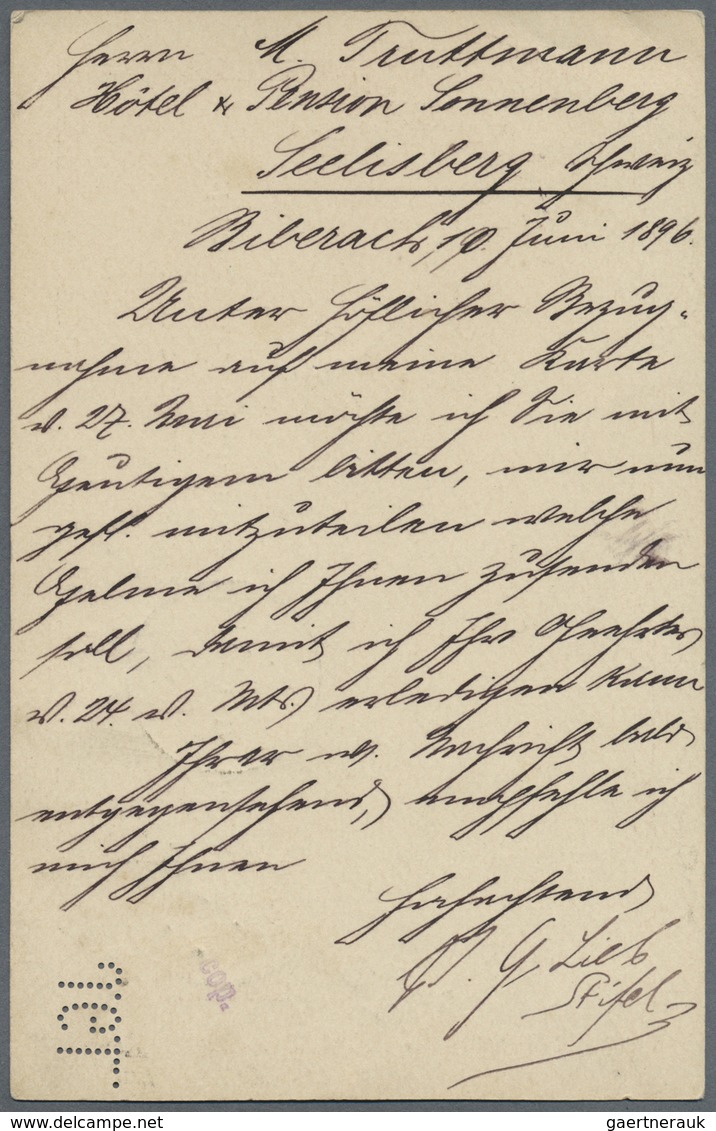 Herrn M. Truttmann
Hôtel & Pension Sonnenberg
Seelisberg Schweiz
Biberach, 10. Juni 1896.
Unter höflicher Bezug-
nahme auf meine Karte
v. 27. Mai möchte ich Sie mit
Heutigem bitten, mir nun
gefl. mitzuteilen welche
ich Ihnen zusenden
soll, damit ich Ihr Geehrtes
v. 24. v. Mts. erledigen kann
Ihrer w. Nachricht bald
entgegensehend, empfehle ich
mich Ihnen
Hochachtend
G. Lieb
Stifel
cop.
delcampe.net
gaertnerauk